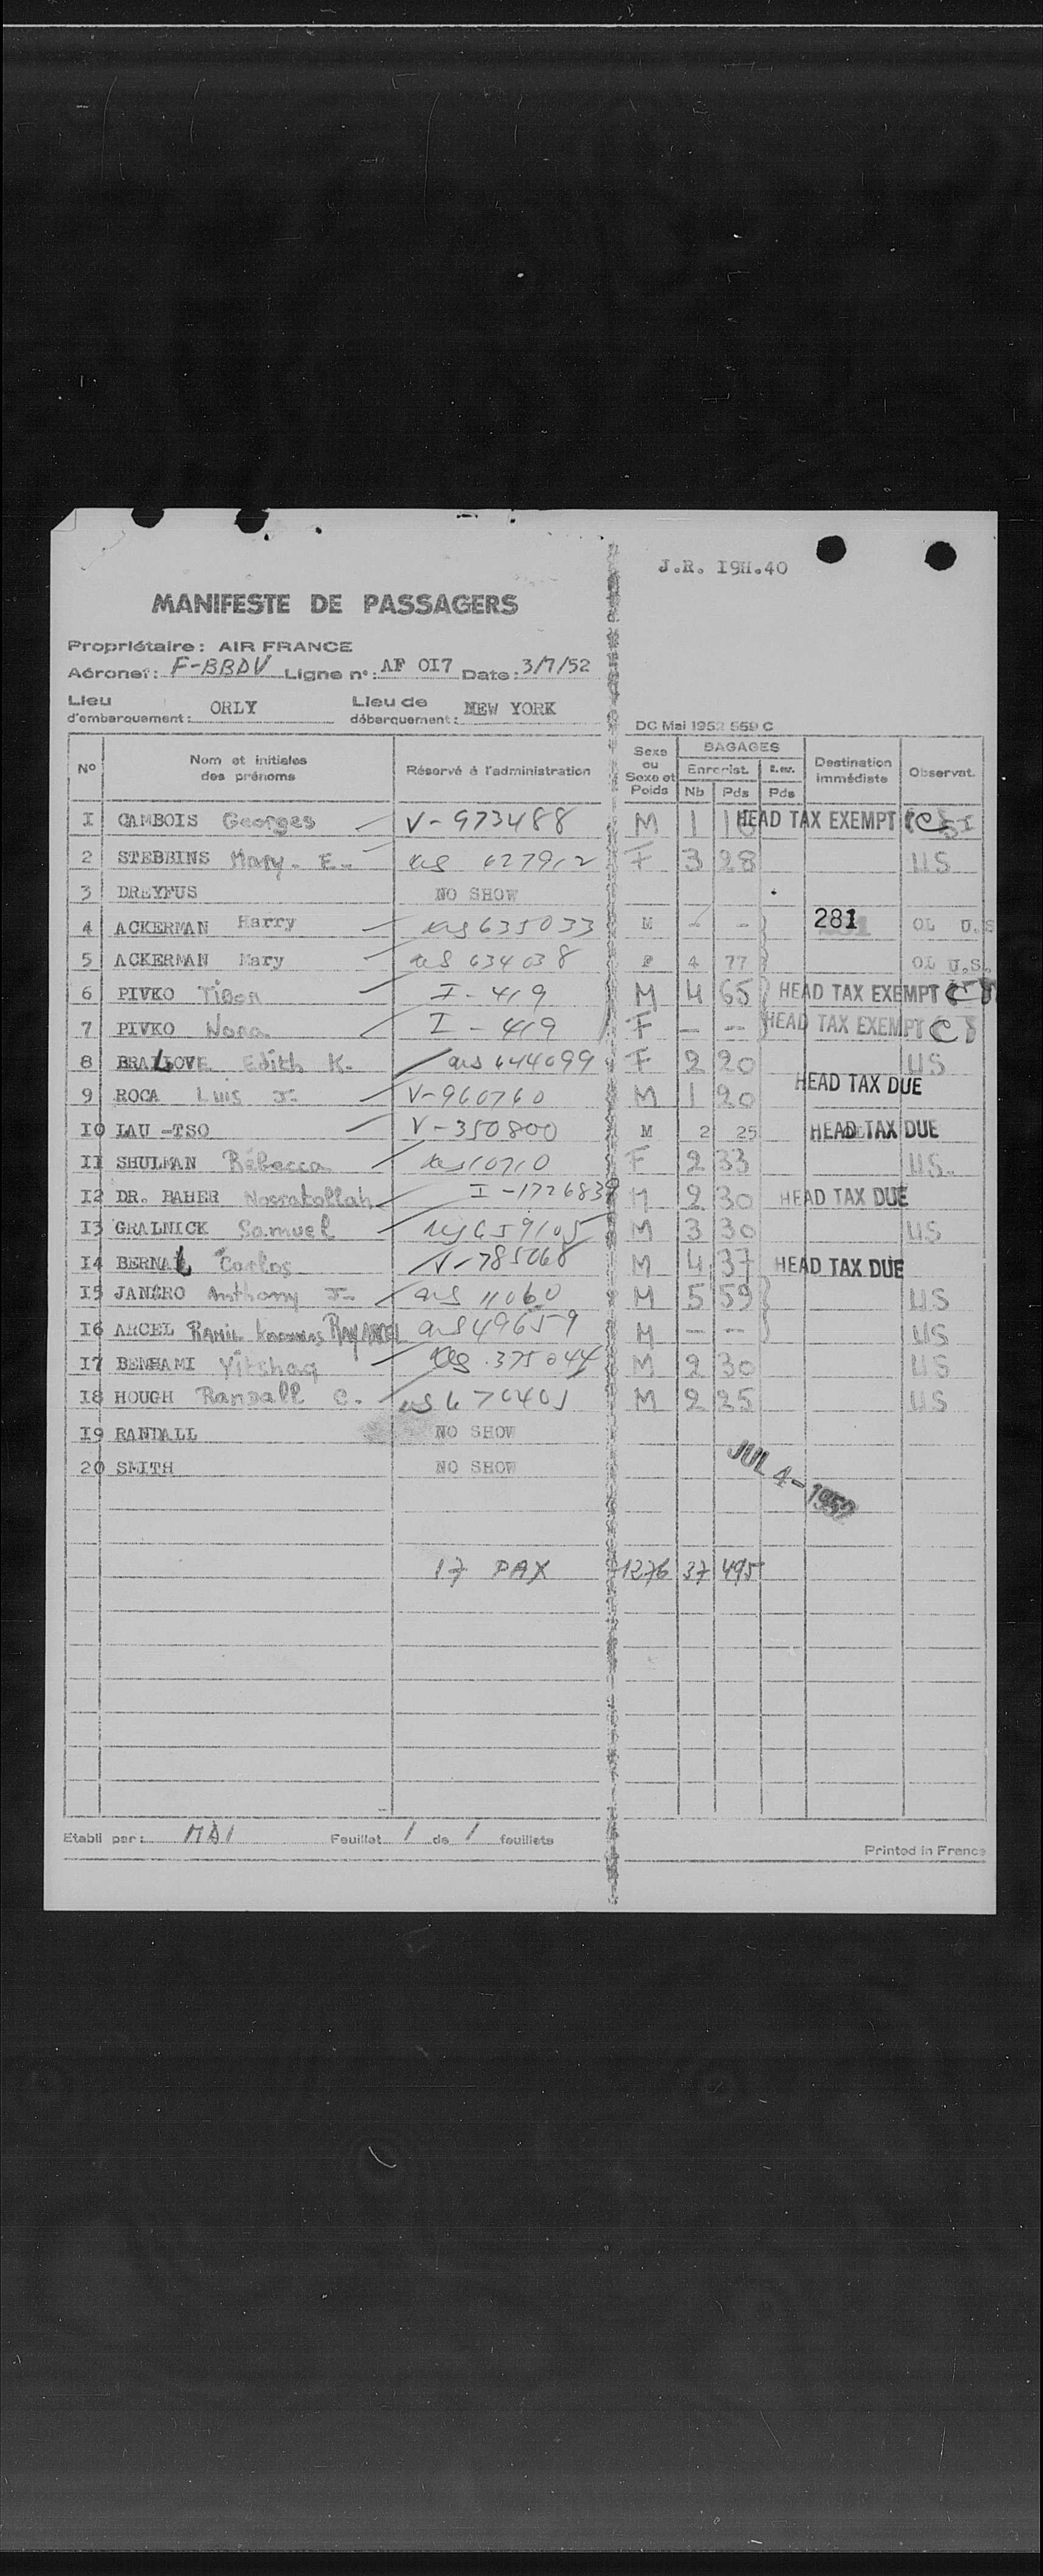 J.R. I9H.40
MANIFESTE DE PASSAGERS
Propriétaire : AIR FRANCE
Aéronef : F-BBDV Ligne n° : AF OI7 Date : 3/7/52
Lieu d'embarquement : ORLY Lieu de débarquement : NEW YORK
DC Mai 1952 559 C
N° Nom et initiales des prénoms Réservé à l'administration Sexe ou Sexe et Poids BAGAGES Enregist. Nb Pds Pds Destination immédiate Observat.
I CAMBOIS Georges V-973488 M 1 HEAD TAX EXEMPT
2 STEBBINS Mary- E- 627912 F 3 28 US
3 DREYFUS NO SHOW
4 ACKERMAN Harry 635033 M - - 281 OL U.S
5 ACKERMAN Mary 634038 F 4 77 OL U.S.
6 PIVKO I-419 M 4 65 HEAD TAX EXEMPT
7 PIVKO Nora I-419 F - -- HEAD TAX EXEMPT
8 BRAILOVE Edith K- 644099 F 2 20 US
9 ROCA Luis J- V-960760 M 1 20 HEAD TAX DUE
IO LAU -TSO V-350800 M 2 25 HEAD TAX DUE
II SHULMAN Rébecca 10710 F 2 33 US-
I2 DR. BAHER Nosratollah I-1726839 M 2 30 HEAD TAX DUE
I3 GRALNICK Samuel 659105 M 3 30 US
I4 BERNAL Carlos V-785068 M 4 37 HEAD TAX DUE
I5 JANERO Anthony J- 11060 M 5 59 US
I6 ARCEL RAY ARCEL 49659 M -- -- US
I7 BENHAMI Yitshaq 375044 M 2 30 US
I8 HOUGH Randall C. M 2 25 US
I9 RANDALL NO SHOW
20 SMITH NO SHOW
JUL 4-1952
17 PAX 1276 37 495
Etabli par : Feuillet 1 de 1 feuillets
Printed in France